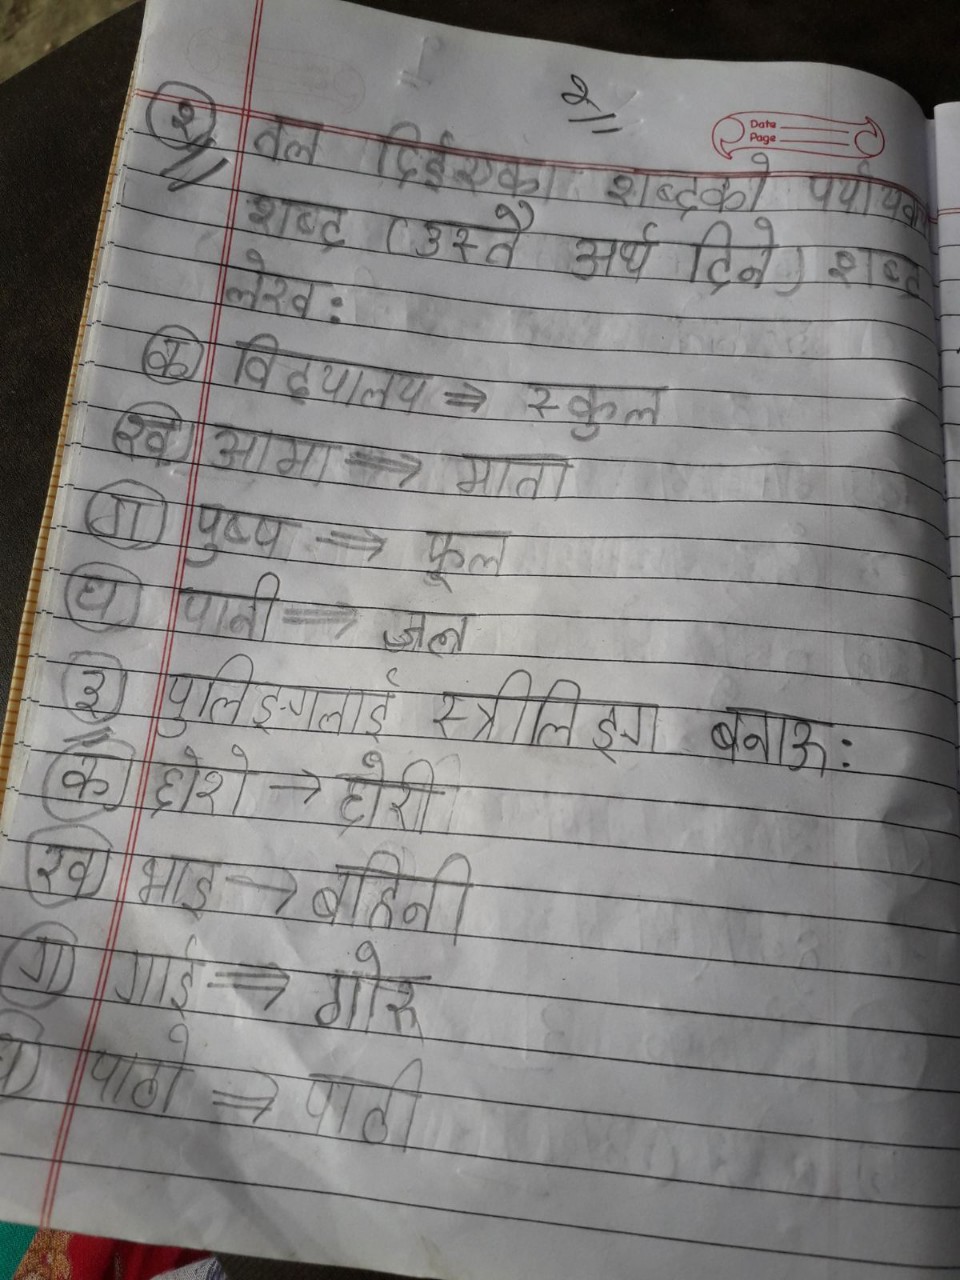 २
Date
Page
२ तल दिईएका शब्दको पर्यायवा
शब्द (उस्तै अर्थ दिने) शब्द
लेख:
क विद्यालय ⇒ स्कुल
ख आमा ⇒ माता
ग पुष्प ⇒ फूल
घ पानी ⇒ जल
३ पुलिङ्गलाई स्त्रीलिङ्ग बनाऊ:
क छोरो → छोरी
ख भाइ → बहिनी
ग गाई ⇒ गोरु
पाठो ⇒ पाठी